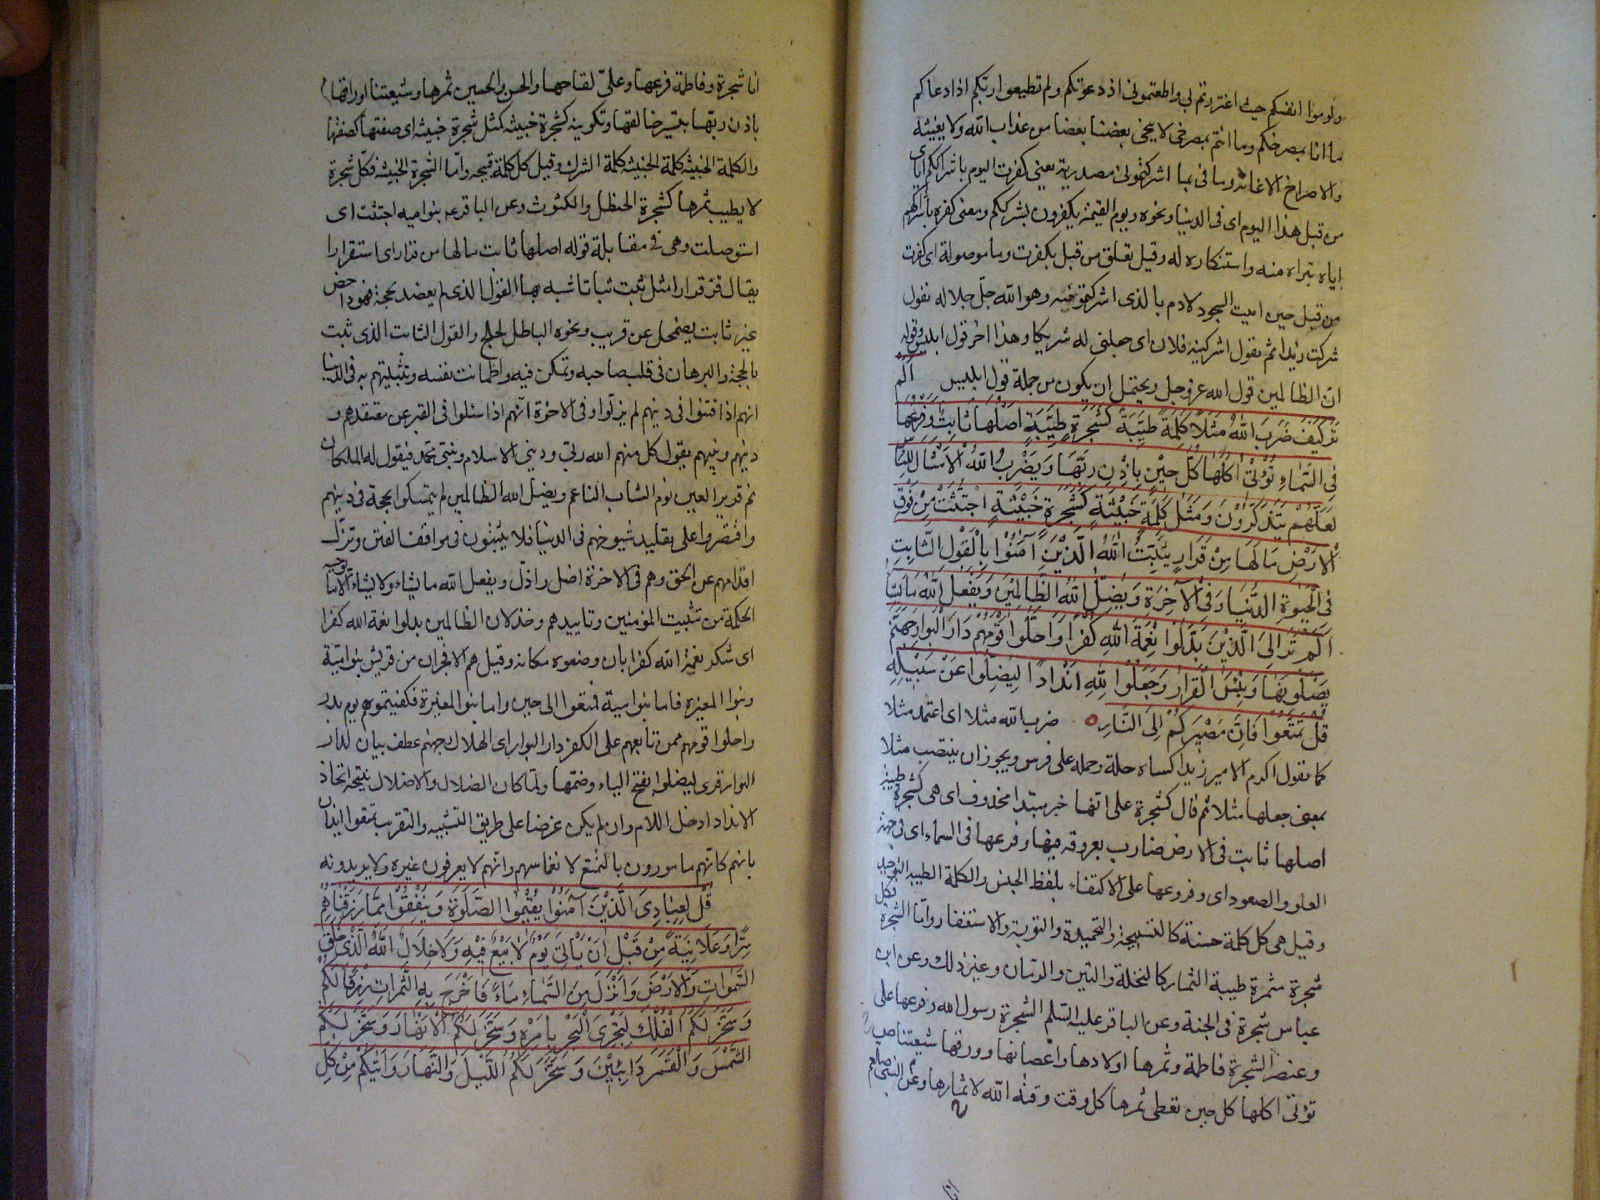 ولوموا انفسكم حيث اغتررتم بي واطعتموني اذ دعوتكم ولم تطيعوا ربكم اذ دعاكم
ما انا بمصرخكم وما انتم بمصرخي لا ينجي بعضنا بعضا من عذاب الله ولا يغيثه
والاصراخ الاغاثة وما في بما اشركتموني مصدرية يعني كفرت اليوم باشراككم اياي
من قبل هذا اليوم اي في الدنيا ونحوه ويوم القيمة يكفرون بشرككم ومعنى كفره باشراكهم
اياه تبراه منه واستنكاره له وقيل تعلق من قبل بكفرت وما موصولة اي كفرت
من قبل حين ابيت السجود لادم بالذي اشركتمونيه وهو الله جل جلاله تقول
شركت زيدا ثم تقول اشركنيه فلان اي جعلني له شريكا وهذا اخر قول ابليس وقوله
ان الظالمين قول الله عزوجل ويحتمل ان يكون من جملة قول ابليس الم
تر كيف ضرب الله مثلا كلمة طيبة كشجرة طيبة اصلها ثابت وفرعها
في السماء تؤتي اكلها كل حين باذن ربها ويضرب الله الامثال للناس
لعلهم يتذكرون ومثل كلمة خبيثة كشجرة خبيثة اجتثت من فوق
الارض ما لها من قرار يثبت الله الذين آمنوا بالقول الثابت
في الحيوة الدنيا وفي الآخرة ويضل الله الظالمين ويفعل الله ما يشاء
الم تر الى الذين بدلوا نعمة الله كفرا واحلوا قومهم دار البوار جهنم
يصلونها وبئس القرار وجعلوا لله اندادا ليضلوا عن سبيله
قل تمتعوا فان مصيركم الى النار ضرب الله مثلا اي اعتمد مثلا
كما تقول اكرم الامير زيدا كساه حلة وحمله على فرس ويجوز ان ينتصب مثلا
بمعنى جعلها مثلا ثم قال كشجرة على انها خبر مبتدا محذوف اي هي كشجرة طيبة
اصلها ثابت في الارض ضارب بعروقه فيها وفرعها في السماء اي في جهة
العلو والصعود اي وفروعها على الاكتفاء بلفظ الجنس والكلمة الطيبة التوحيد
وقيل هي كل كلمة حسنة كالتسبيحة والتحميدة والتوبة والاستغفار واما الشجرة فكل
شجرة مثمرة طيبة الثمار كالنخلة والتين والرمان وغير ذلك وعن ابن
عباس شجرة في الجنة وعن الباقر عليه السلم الشجرة رسول الله وفرعها علي
وعنصر الشجرة فاطمة وثمرها اولادها واغصانها وورقها شيعتنا
تؤتي اكلها كل حين تعطي ثمرها كل وقت وقته الله لاثمارها وعن النبي صلعم
انا شجرة وفاطمة فرعها وعلي لقاحها والحسن والحسين ثمرها وشيعتنا اوراقها
باذن ربها بتيسير خالقها وتكوينه كشجرة خبيثة كمثل شجرة خبيثة اي صفتها كصفتها
والكلمة الخبيثة كلمة الشرك وقيل كل كلمة قبيحة واما الشجرة الخبيثة فكل شجرة
لا يطيب ثمرها كشجرة الحنظل والكثوث وعن الباقر ع بنو امية اجتثت اي
استوصلت وهي في مقابلة قوله اصلها ثابت ما لها من قرار اي استقرار
يقال قر قرارا مثل ثبت ثباتا شبه بها القول الذي لم يعضد بحجة فهو داحض
غير ثابت يضمحل عن قريب ونحوه الباطل لجلج والقول الثابت الذي ثبت
بالحجة والبرهان في قلب صاحبه وتمكن فيه واطمانت نفسه وتثبيتهم به في الدنيا
انهم اذا فتنوا في دينهم لم يزلوا وفي الاخرة انهم اذا سئلوا في القبر عن معتقدهم و
دينهم ونبيهم يقول كل منهم الله ربي وديني الاسلام ونبيي محمد فيقول له الملكان
نم قرير العين نوم الشاب الناعم ويضل الله الظالمين لم يتمسكوا بحجة في دينهم
واقتصروا على تقليد شيوخهم في الدنيا فلا يثبتون في مواقف الفتن وتزل
اقدامهم عن الحق وهم في الاخرة اضل واذل ويفعل الله ما يشاء ولا يشاء الا ما توجبه
الحكمة من تثبيت المؤمنين وتاييدهم وخذلان الظالمين بدلوا نعمة الله كفرا
اي شكر نعمة الله كفرا بان وضعوه مكانه وقيل هم الافجران من قريش بنو امية
وبنوا المغيرة فاما بنو امية فمتعوا الى حين واما بنو المغيرة فكفيتموهم يوم بدر
واحلوا قومهم ممن تابعهم على الكفر دار البوار اي الهلاك جهنم عطف بيان لدار
البوار قرئ ليضلوا بفتح الياء وضمها ولما كان الضلال والاضلال نتيجة اتخاذ
الانداد ادخل اللام وان لم يكن غرضا على طريق التشبيه والتقريب تمتعوا ايذان
بانهم كانهم مامورون بالتمتع لانغماسهم وانهم لا يعرفون غيره ولا يريدونه
قل لعبادي الذين آمنوا يقيموا الصلوة وينفقوا مما رزقناهم
سرا وعلانية من قبل ان يأتي يوم لا بيع فيه ولا خلال الله الذي خلق
السموات والارض وانزل من السماء ماء فاخرج به الثمرات رزقا لكم
وسخر لكم الفلك لتجري في البحر بامره وسخر لكم الانهار وسخر لكم
الشمس والقمر دائبين وسخر لكم الليل والنهار وآتيكم من كل